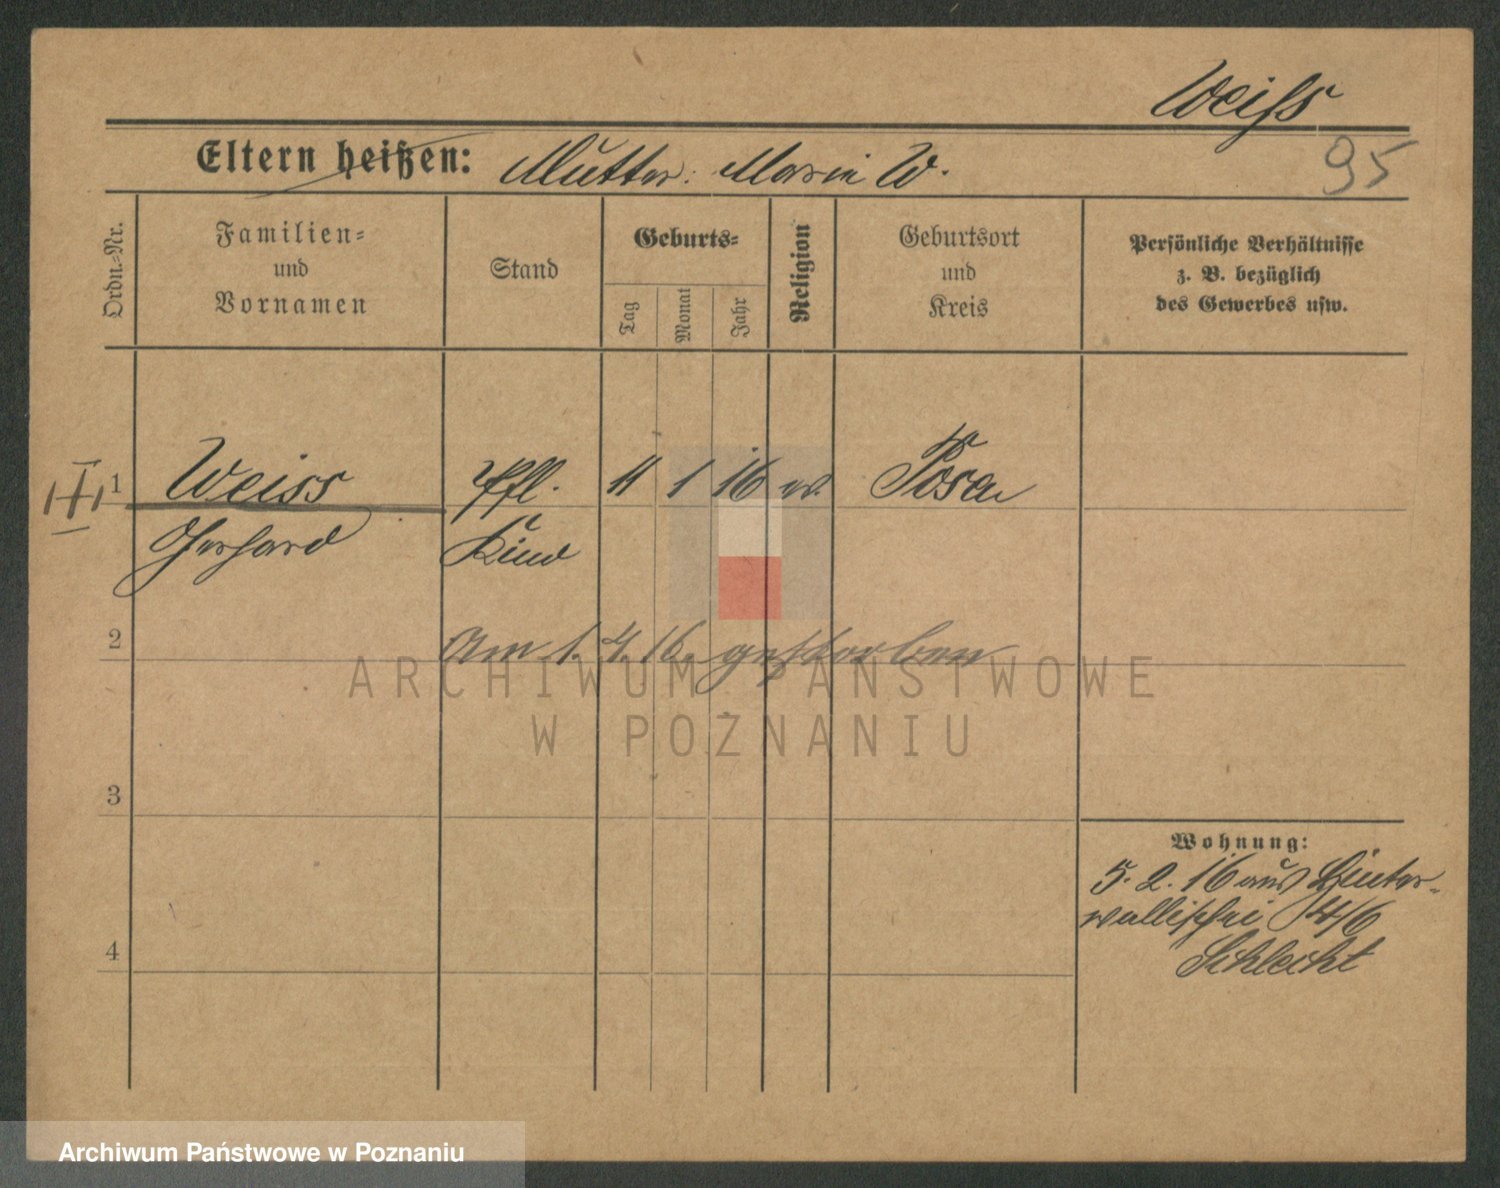 Weiß
Eltern heißen: Mutter: Marie W.
95
Ordn.-Nr.
Familien-
und
Vornamen
Stand
Geburts-
Tag
Monat
Jahr
Religion
Geburtsort
und
Kreis
Persönliche Verhältnisse
z. B. bezüglich
des Gewerbes usw.
1 Weiss Pfl. 11 1 16 ev. Posen
Gerhard Kind
2
Am 1. 4. 16. gestorben
ARCHIWUM PAŃSTWOWE
W POZNANIU
3
Wohnung:
5. 2. 16 aus Hinter-
wallischei 4/6
4
Schlecht
Archiwum Państwowe w Poznaniu